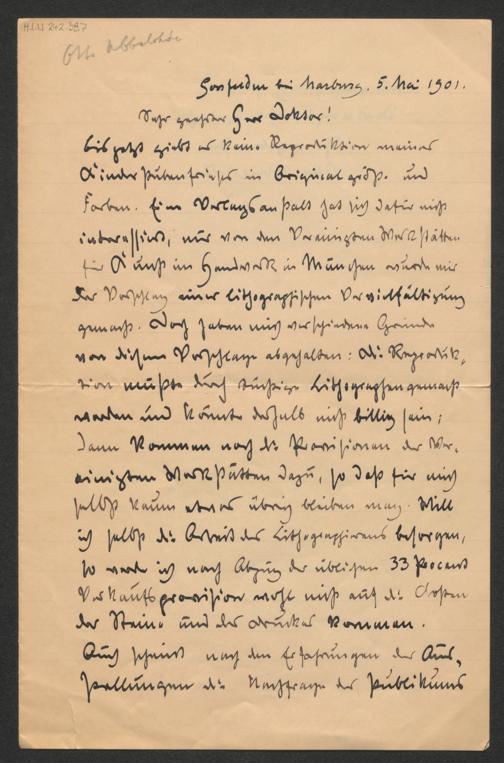 H.I.U 242.387
Otto Ubbelohde
Gossfelden bei Marburg. 5. Mai 1901.
Sehr geehrter Herr Doktor!
bis jetzt giebt es keine Reproduktion meines
Kinderstubenfrieses in Originalgröß. und
Farben. Eine Verlagsanstalt hat sich dafür nicht
interessirt, nur von den Vereinigten Werkstätten
für Kunst im Handwerk in München wurde mir
der Vorschlag einer lithographischen Vervielfältigung
gemacht. Doch haben mich verschiedene Gründe
von diesem Vorschlage abgehalten: die Reproduk-
tion müßte durch tüchtige Lithographen gemacht
werden und könnte deshalb nicht billig sein;
dann kommen noch die Provisionen der Ver-
einigten Werkstätten dazu, so daß für mich
selbst kaum etwas übrig bleiben mag. Will
ich selbst die Arbeit des Lithographirens besorgen,
so werde ich nach Abzug der üblichen 33 Procent
Verkaufsprovision wohl nicht auf die Kosten
der Steine und des Druckes kommen.
Auch scheint nach den Erfahrungen der Aus-
stellungen die Nachfrage des Publikums